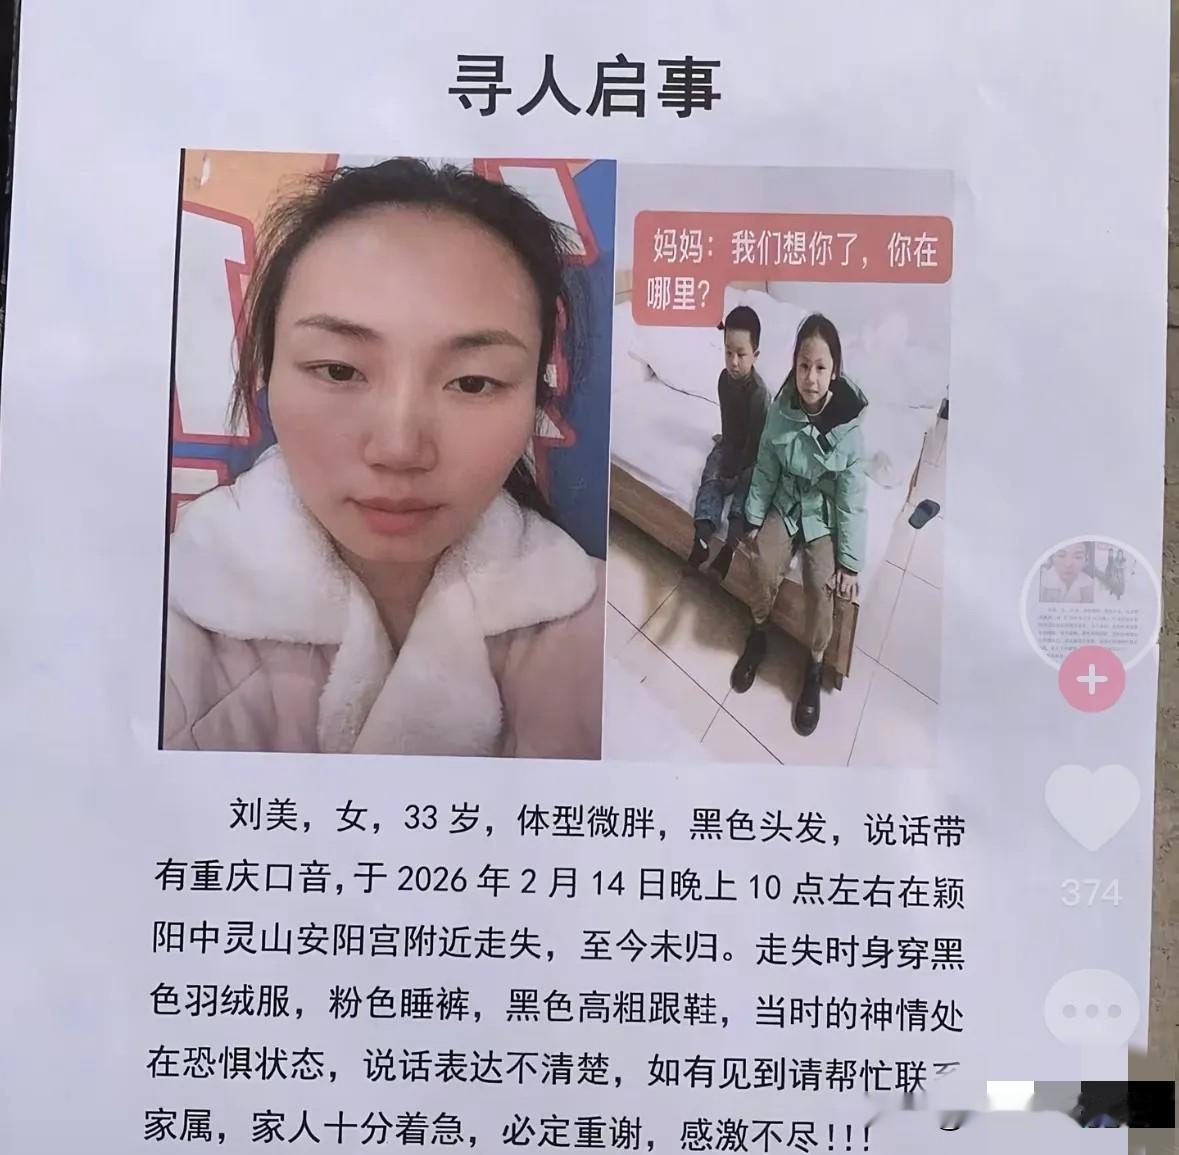 寻人启事
妈妈：我们想你了，你在
哪里？
刘美，女，33岁，体型微胖，黑色头发，说话带
有重庆口音，于2026年2月14日晚上10点左右在颖
阳中灵山安阳宫附近走失，至今未归。走失时身穿黑
色羽绒服，粉色睡裤，黑色高粗跟鞋，当时的神情处
在恐惧状态，说话表达不清楚，如有见到请帮忙联系
家属，家人十分着急，必定重谢，感激不尽!!!
374